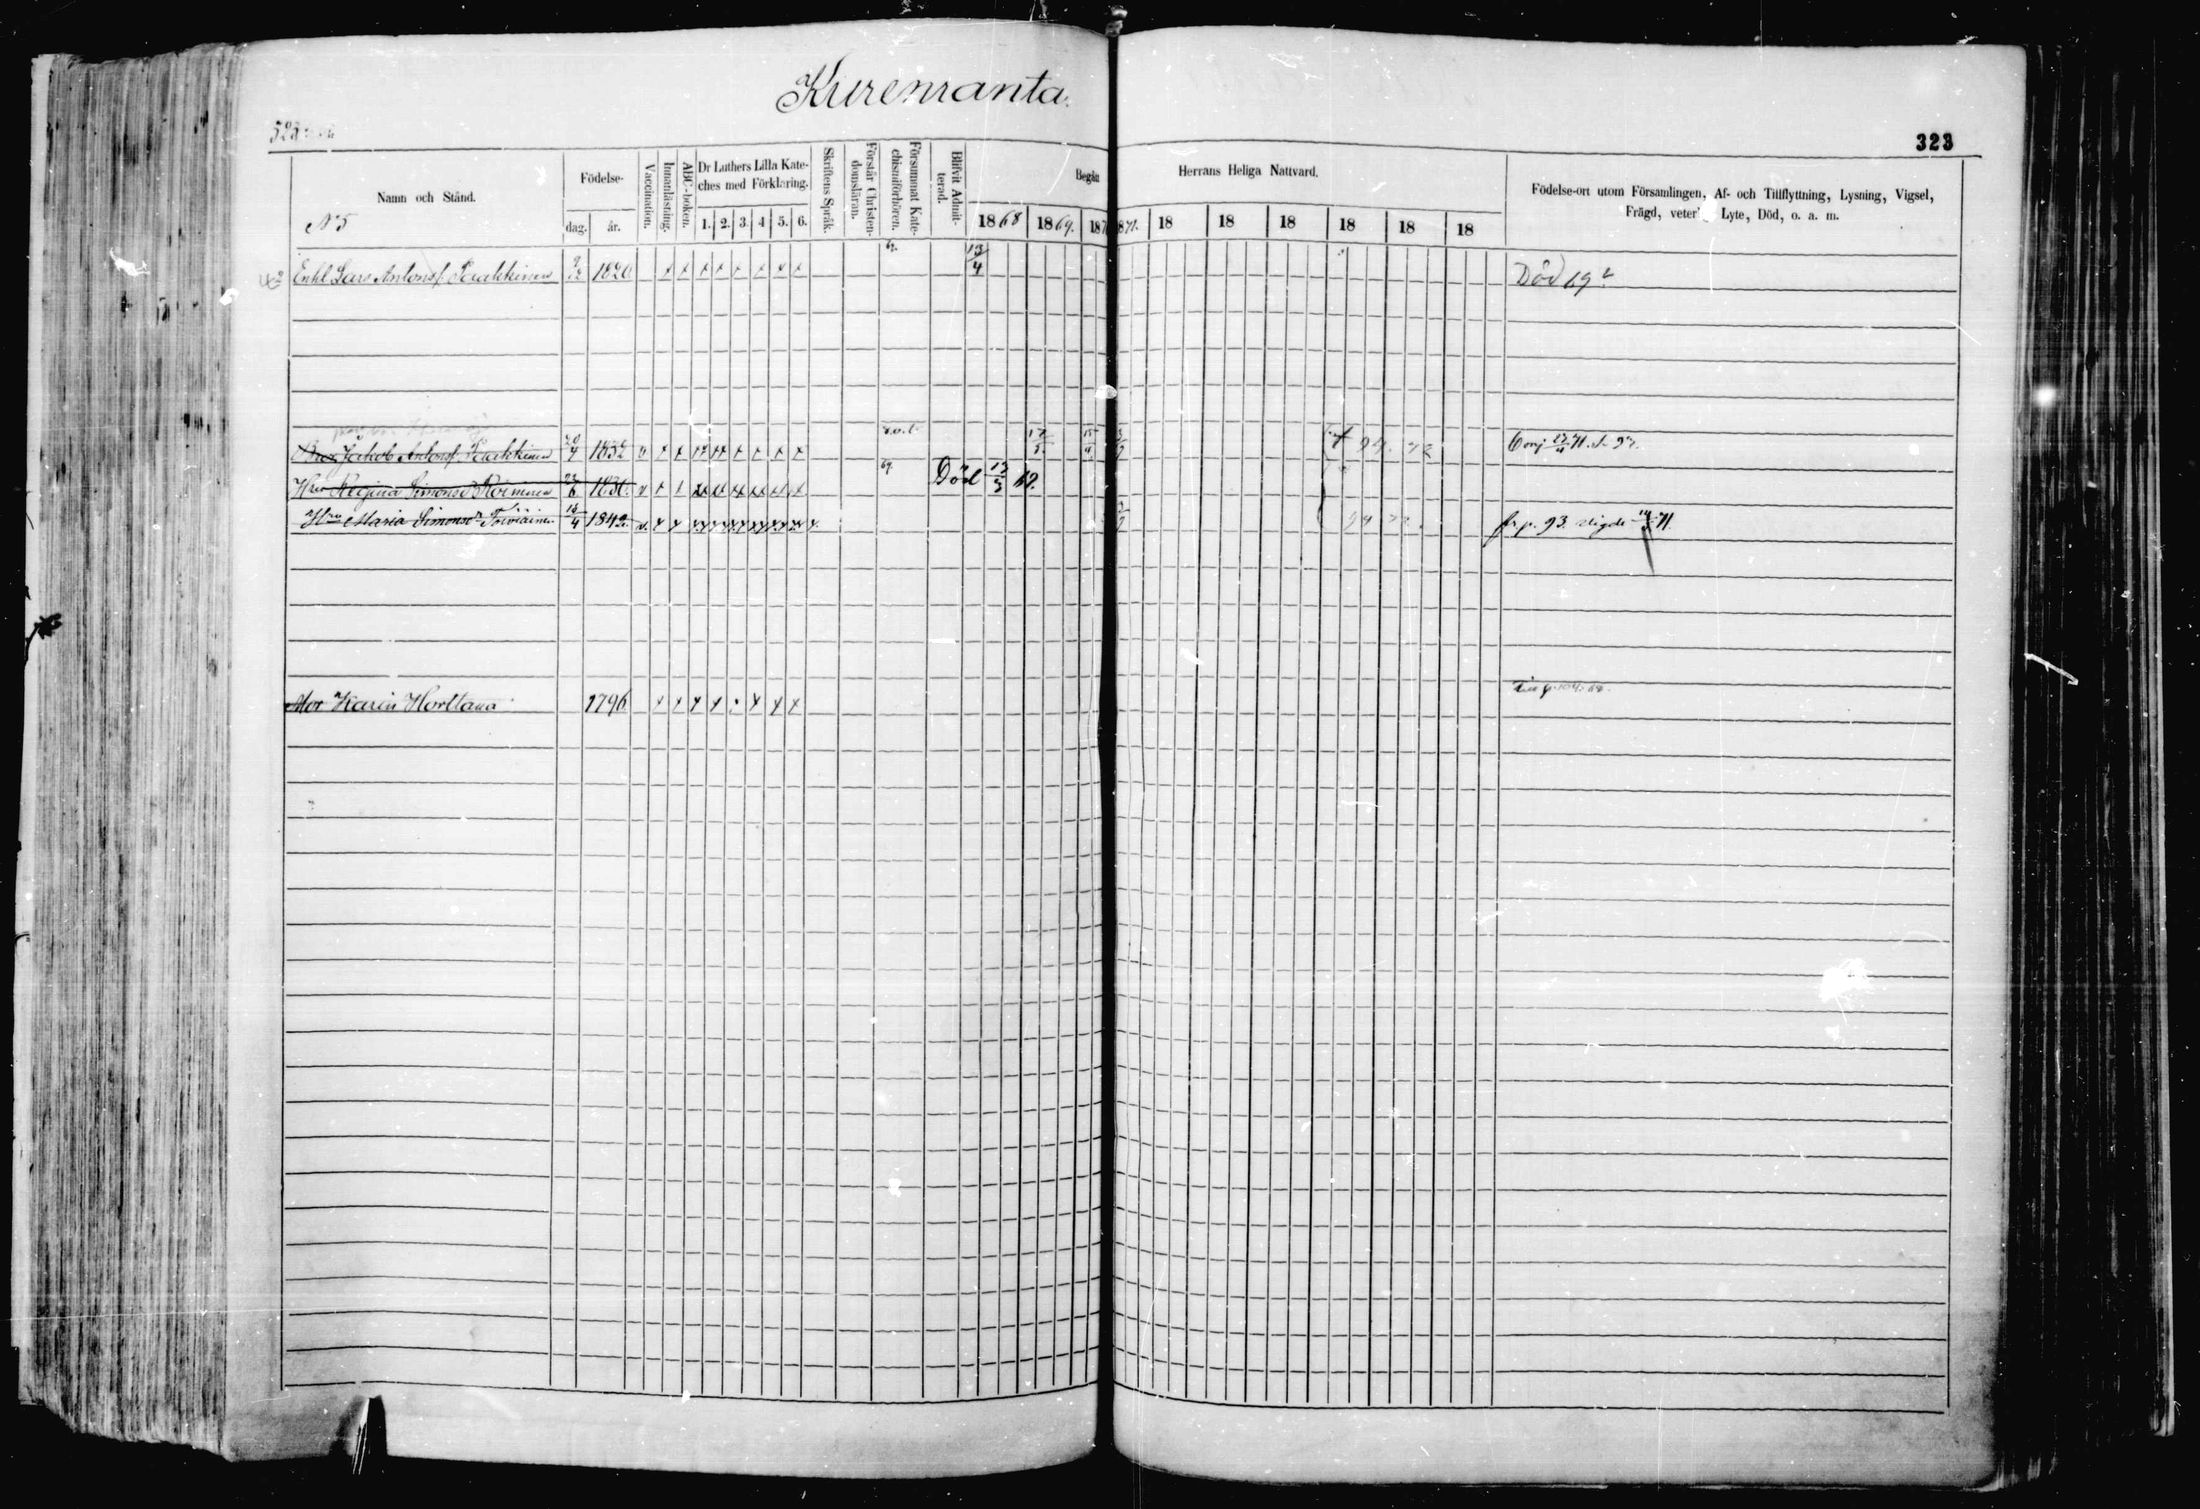 Kurenranta.
323
Namn och Stånd.
N 5
Födelse-
dag.
år.
Vaccination.
Innanläsning.
ABC-boken.
Dr Luthers Lilla Kate-
ches med Förklaring.
1. 2. 3. 4 5. 6.
Skriftens Språk.
Förstår Christen-
domsläran.
Försummat Kate-
chismiförhören.
Blifvit Admit-
terad.
Begån
Herrans Heliga Nattvard.
1868 1869. 187 871. 18 18 18 18 18 18
Födelse-ort utom Församlingen, Af- och Tillflyttning, Lysning, Vigsel,
Frägd, veter Lyte, Död, o. a. m.
Enkl Lars Antonsf. Paakkinen 1820 x x x x x x x x 13/4 Död 69
Bror Jakob Antonsf. Paakkinen 20/4 1832 v x x x x x x x x 94. 72
Hru Regina Simonsdr Roininen 1830. v x x x x x x x x 69. Död 13/3 69.
Hru Maria Simonsdr Toiviainen 1842 v. x x x x x x x x x 94 72. fr p. 93. vigde 71.
Mor Karin Horttana 1796 x x x x x x x